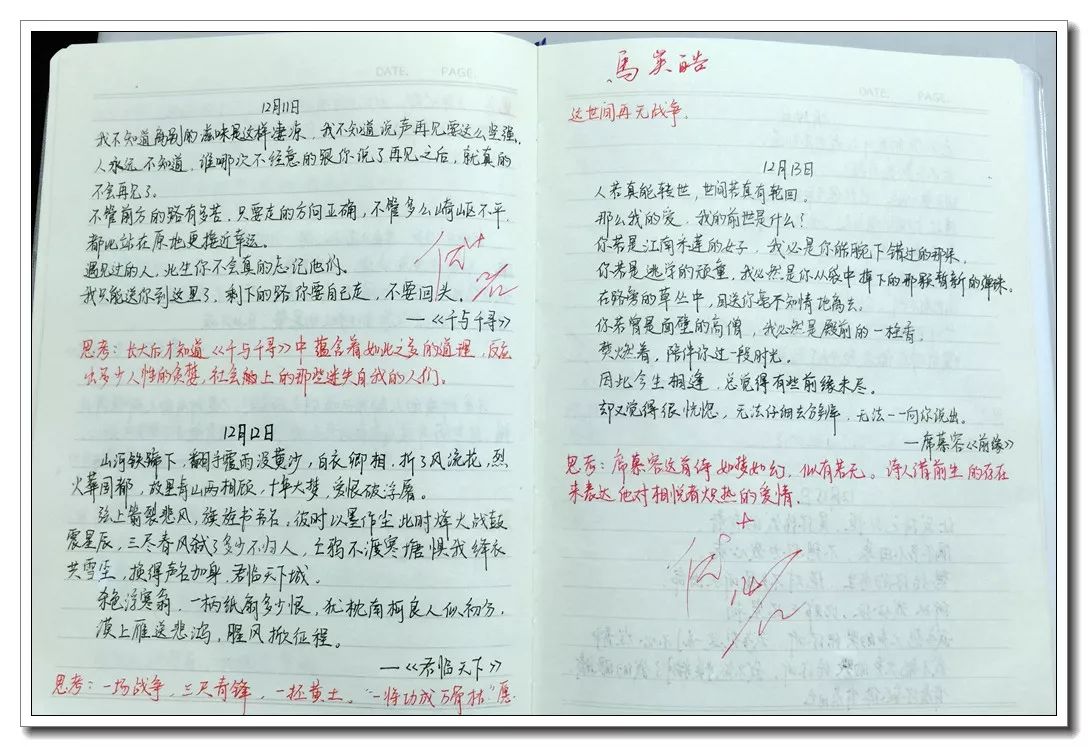 DATE. PAGE.
12月11日
我不知道离别的滋味是这样凄凉，我不知道说声再见要这么坚强。
人永远不知道，谁哪次不经意的跟你说了再见之后，就真的
不会再见了。
不管前方的路有多苦，只要走的方向正确，不管多么崎岖不平，
都比站在原地更接近幸运。
遇见过的人，此生你不会真的忘记他们。
我只能送你到这里了，剩下的路你要自己走，不要回头。
—《千与千寻》
思考：长大后才知道《千与千寻》中蕴含着如此之多的道理，反应
出多少人性的贪婪，社会上的那些迷失自我的人们。
12月12日
山河铁蹄下，翻手霍雨没黄沙，白衣卿相，折了风流花，烈
火华国都，故里青山两相顾，十年大梦，爱恨破浮屠。
弦上箭裂悲风，旗旌书吾名，彼时以墨作尘此时烽火战鼓
震星辰，三尽春风弑了多少不归人，上鸦不渡寒塘惧我绛衣
共雪尘，换得声名加身，君临天下城。
一柄纸扇多少恨，犹枕南柯良人似初方，
漠上雁送悲鸿，腥风掀征程。
—《君临天下》
思考：一场战争，三尺青锋，一抔黄土。“一将功成万骨枯”愿
馬英皓
DATE. PAGE.
这世间再无战争。
12月13日
人若真能转世，世间若真有轮回，
那么我的爱，我的前世是什么？
你若是江南采莲的女子，我必是你皓腕下错过的那朵，
你若是逃学的顽童，我必然是你从袋中掉下的那颗崭新的弹珠，
在路旁的草丛中，目送你毫不知情地离去。
你若曾是面壁的高僧，我必然是殿前的一柱香，
焚燃着，陪伴你过一段时光。
因此今生相逢，总觉得有些前缘未尽。
却又觉得很恍惚，无法仔细去分辨，无法一一向你说出。
—席慕容《前缘》
思考：席慕容这首诗如梦如幻，似有若无。诗人借前生的存在
来表达他对相悦者炽热的爱情。